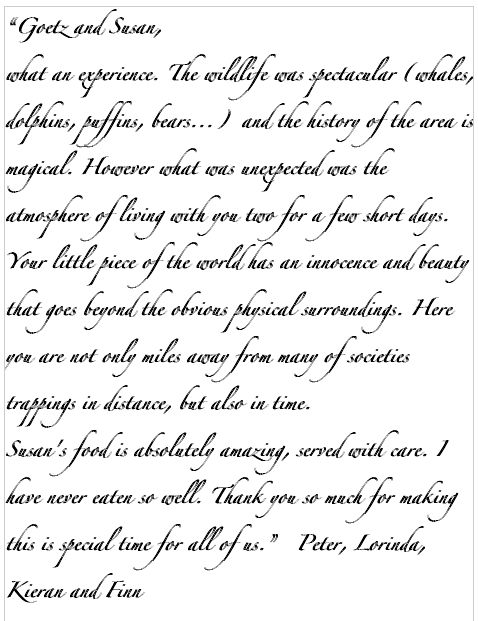 “Goetz and Susan,
what an experience. The wildlife was spectacular (whales,
dolphins, puffins, bears...) and the history of the area is
magical. However what was unexpected was the
atmosphere of living with you two for a few short days.
Your little piece of the world has an innocence and beauty
that goes beyond the obvious physical surroundings. Here
you are not only miles away from many of societies
trappings in distance, but also in time.
Susan's food is absolutely amazing, served with care. I
have never eaten so well. Thank you so much for making
this is special time for all of us.” Peter, Lorinda,
Kieran and Finn